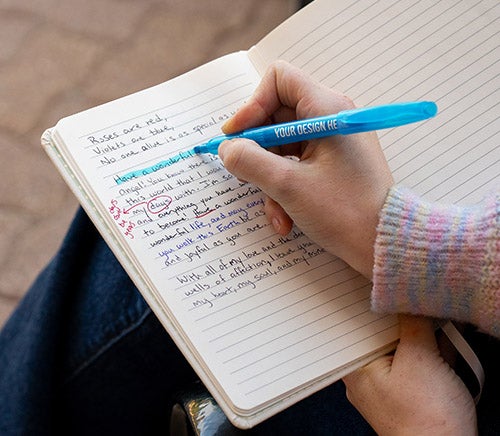 Roses are red,
Violets are blue,
No one alive is as special as
Have a wonderful
Angel. You know there
this world that I
my days with. I'm so
and everything you have
to become. a wonderful
wonderful life, and
you walk this Earth
and joyful as you are.
With all of my love and the
wells of affection, I love you
my heart, my soul, and my
YOUR DESIGN HE